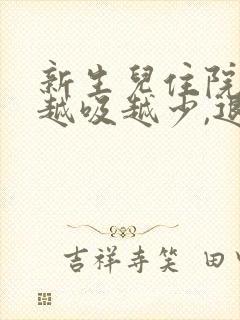 新生兒住院
越吸越少,退
吉祥寺笑 田